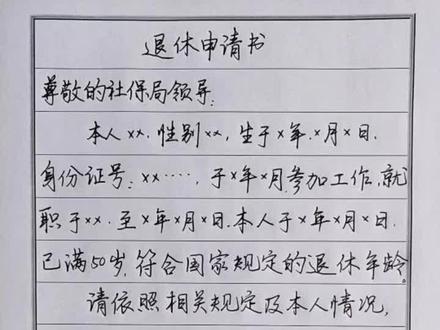 退休申请书
尊敬的社保局领导:
本人××.性别××,生于×年.×月×日.
身份证号:××·····,于×年×月参加工作,就
职于××.至×年×月×日.本人于×年×月×日.
已满50岁.符合国家规定的退休年龄.
请依照相关规定及本人情况,